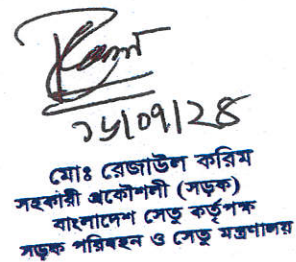 ১৬/০৭/২৪
মোঃ রেজাউল করিম
সহকারী প্রকৌশলী (সড়ক)
বাংলাদেশ সেতু কর্তৃপক্ষ
সড়ক পরিবহন ও সেতু মন্ত্রণালয়